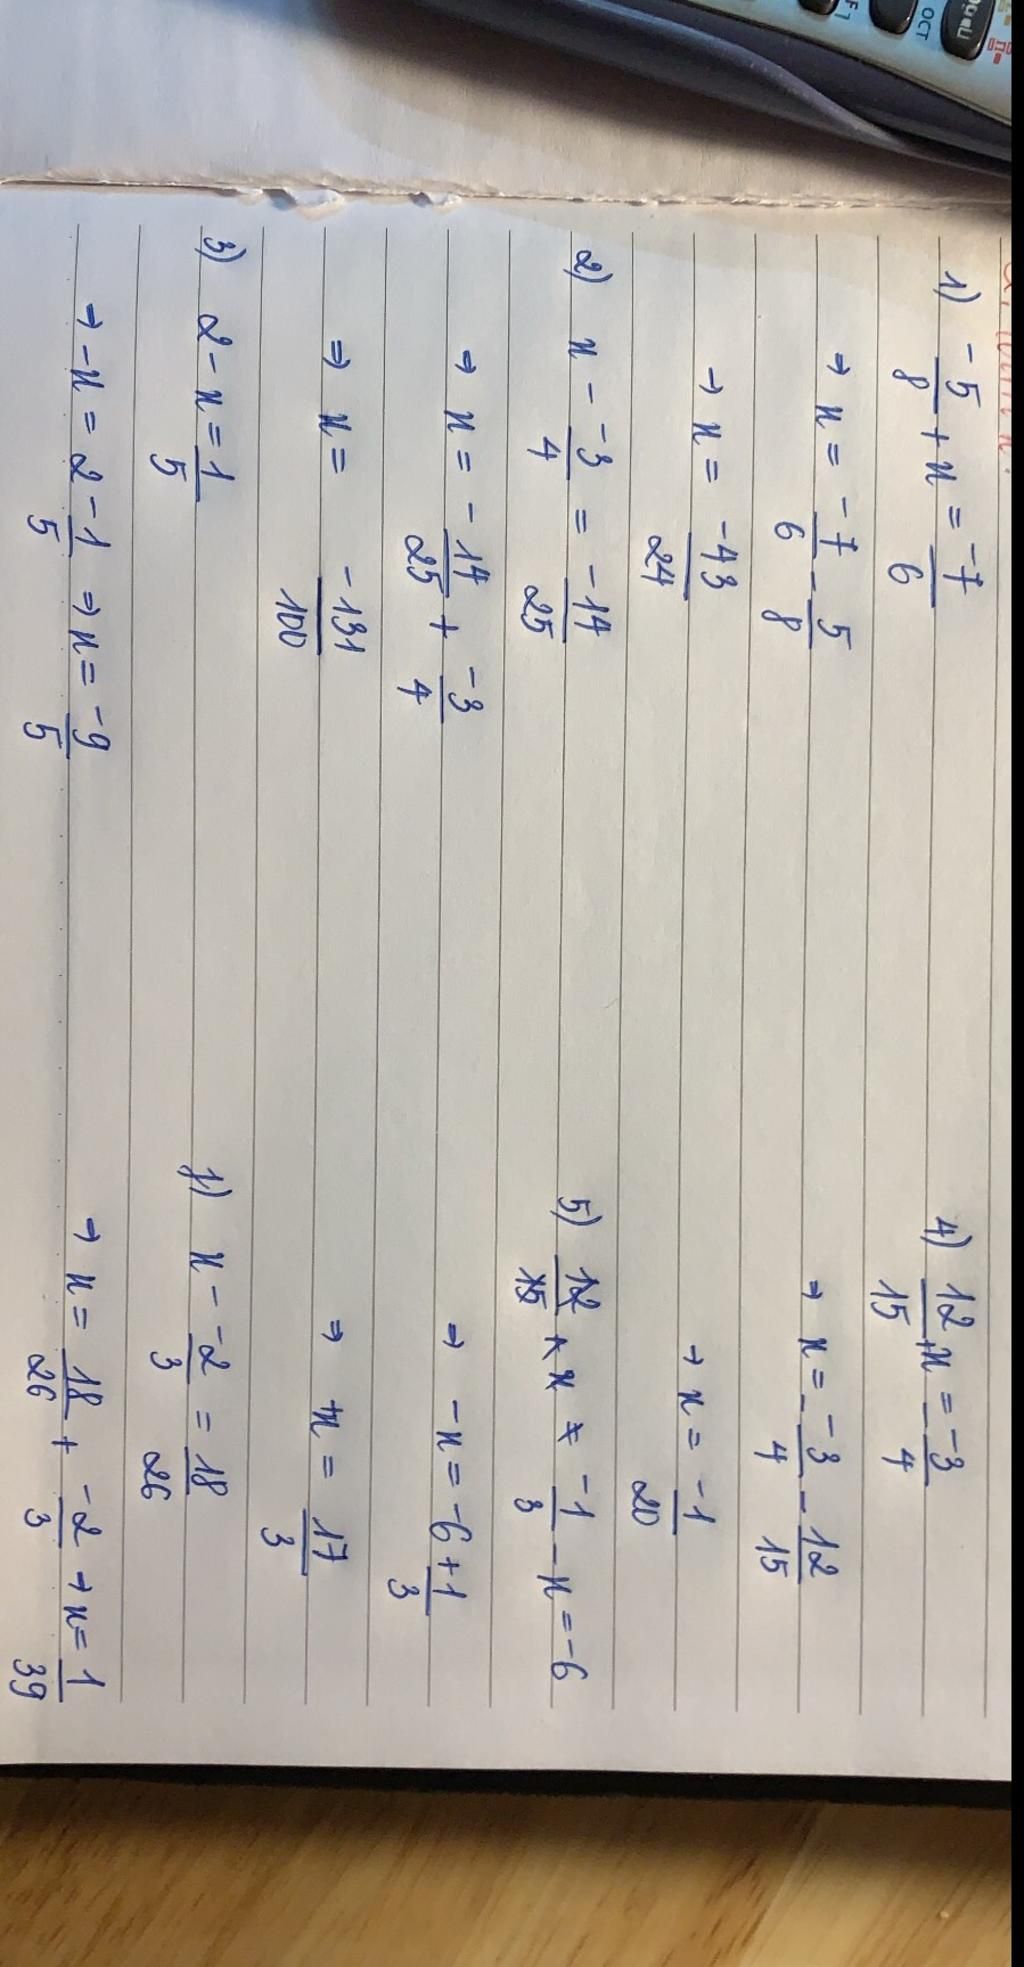 1) -5/8 + x = -7/6
→ x = -7/6 - 5/8
→ x = -43/24
2) x - -3/4 = -14/25
→ x = -14/25 + -3/4
⇒ x = -131/100
3) 2 - x = 1/5
→ -x = 2 - 1/5 ⇒ x = -9/5
4) 12/15 + x = -3/4
→ x = -3/4 - 12/15
→ x = -1/20
5) -1/3 - x = -6
→ -x = -6 + 1/3
→ x = 17/3
x - -2/3 = 18/26
→ x = 18/26 + -2/3 → x = 1/39
OCT
F1